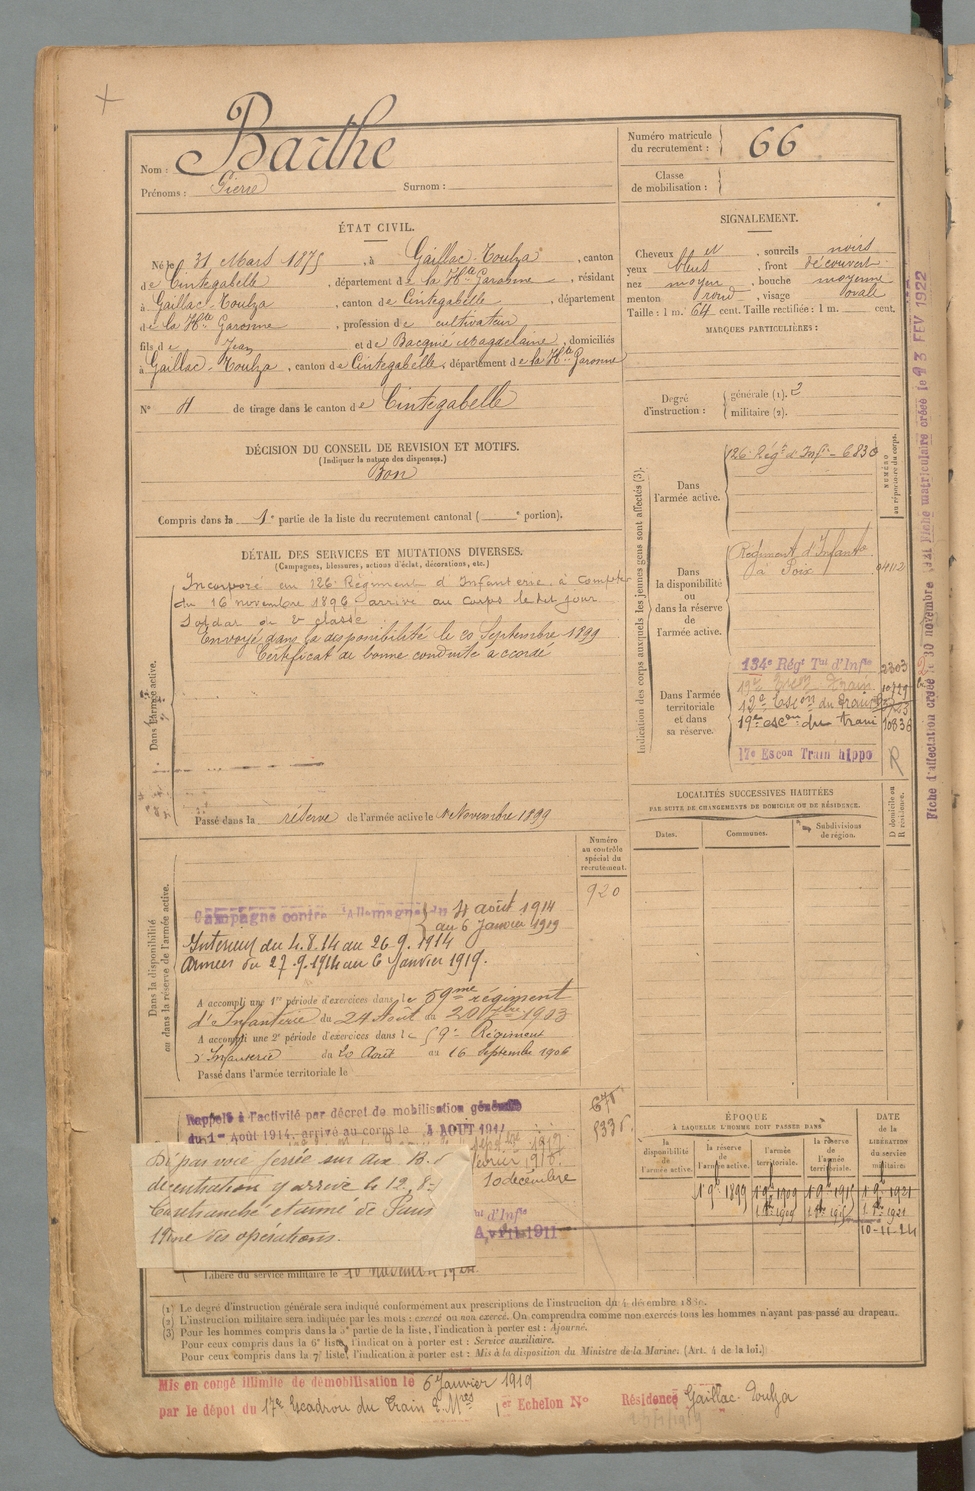 Nom : Barthe
Prénoms : Pierre Surnom :
Numéro matricule du recrutement : 66
Classe de mobilisation :
ÉTAT CIVIL.
Né le 31 Mars 1875, à Gaillac-Toulza, canton
de Cintegabelle, département de la Hte Garonne, résidant
à Gaillac-Toulza, canton de Cintegabelle, département
de la Hte Garonne, profession de cultivateur
fils de Jean et de Bacquié Magdelaine, domiciliés
à Gaillac-Toulza, canton de Cintegabelle, département de la Hte Garonne
N° de tirage dans le canton de Cintegabelle
SIGNALEMENT.
Cheveux et, sourcils noirs
yeux bleus, front découvert
nez moyen, bouche moyenne
menton rond, visage ovale
Taille : 1 m. 64 cent. Taille rectifiée : 1 m. cent.
MARQUES PARTICULIÈRES :
Degré d'instruction : générale (1). 3
militaire (2).
DÉCISION DU CONSEIL DE REVISION ET MOTIFS.
(Indiquer la nature des dispenses.)
Bon
Compris dans la 1e partie de la liste du recrutement cantonal ( e portion).
DÉTAIL DES SERVICES ET MUTATIONS DIVERSES.
(Campagnes, blessures, actions d'éclat, décorations, etc.)
Dans l'armée active.
Incorporé au 126e Régiment d'Infanterie à compter
du 16 novembre 1896, arrivé au corps le dit jour
Soldat de 2e classe
Envoyé dans la disponibilité le 20 Septembre 1899
Certificat de bonne conduite accordé
Passé dans la réserve de l'armée active le 1er Novembre 1899
Indication des corps auxquels les jeunes gens sont affectés (3).
NUMÉRO au répertoire du corps.
Dans l'armée active.
126e Régt d'Infie 6830
Dans la disponibilité ou dans la réserve de l'armée active.
Régiment d'Infantie
à Foix 04112
Dans l'armée territoriale et dans sa réserve.
134e Régt Tal d'Infie 2303
17e Escon Train
19e escon du train 10836
17e Escon Train hippo R
LOCALITÉS SUCCESSIVES HABITÉES
PAR SUITE DE CHANGEMENTS DE DOMICILE OU DE RÉSIDENCE.
Dates. Communes. Subdivisions de région. D domicile ou R résidence.
Numéro au contrôle spécial du recrutement.
920
Dans la disponibilité ou dans la réserve de l'armée active.
Campagne contre l'Allemagne du 4 août 1914
au 6 Janvier 1919
Intérieur du 4.8.14 au 26.9.1914
Armées du 27.9.1914 au 6 Janvier 1919.
A accompli une 1re période d'exercices dans le 59me régiment
d'Infanterie du 24 Août au 20 7bre 1903
A accompli une 2e période d'exercices dans le 59e Régiment
d'Infanterie du 20 Août au 16 Septembre 1906
Passé dans l'armée territoriale le
Rappelé à l'activité par décret de mobilisation générale
du 1er Août 1914, arrivé au corps le 4 AOUT 1914
Dépar voie ferrée sur aix B.
décentration y arrive le 12.8.
Caretranché et armé de Paris
19ème des opérations.
10 décembre
Avril 1911
Libéré du service militaire le 10 novembre
ÉPOQUE
À LAQUELLE L'HOMME DOIT PASSER DANS
la disponibilité de l'armée active. la réserve de l'armée active. l'armée territoriale. la réserve de l'armée territoriale.
DATE DE LA LIBÉRATION DU service militaire.
1 9bre 1899 1 9bre 1909 1 9bre 1915 1 9bre 1921
10-11-24
(1) Le degré d'instruction générale sera indiqué conformément aux prescriptions de l'instruction du 4 décembre
(2) L'instruction militaire sera indiquée par les mots : exercé ou non exercé. On comprendra comme non exercés tous les hommes n'ayant pas passé au drapeau.
(3) Pour les hommes compris dans la 5e partie de la liste, l'indication à porter est : Ajourné.
Pour ceux compris dans la 6e liste, l'indication à porter est : Service auxiliaire.
Pour ceux compris dans la 7e liste, l'indication à porter est : Mis à la disposition du Ministre de la Marine. (Art. 4 de la loi.)
Mis en congé illimité de démobilisation le 6 Janvier 1919
par le dépôt du 17e Escadron du Train 1er Echelon N° Résidence Gaillac-Toulza
Fiche d'affectation créée le 30 novembre 1921 Fiche matriculaire créée le 23 FEV 1922